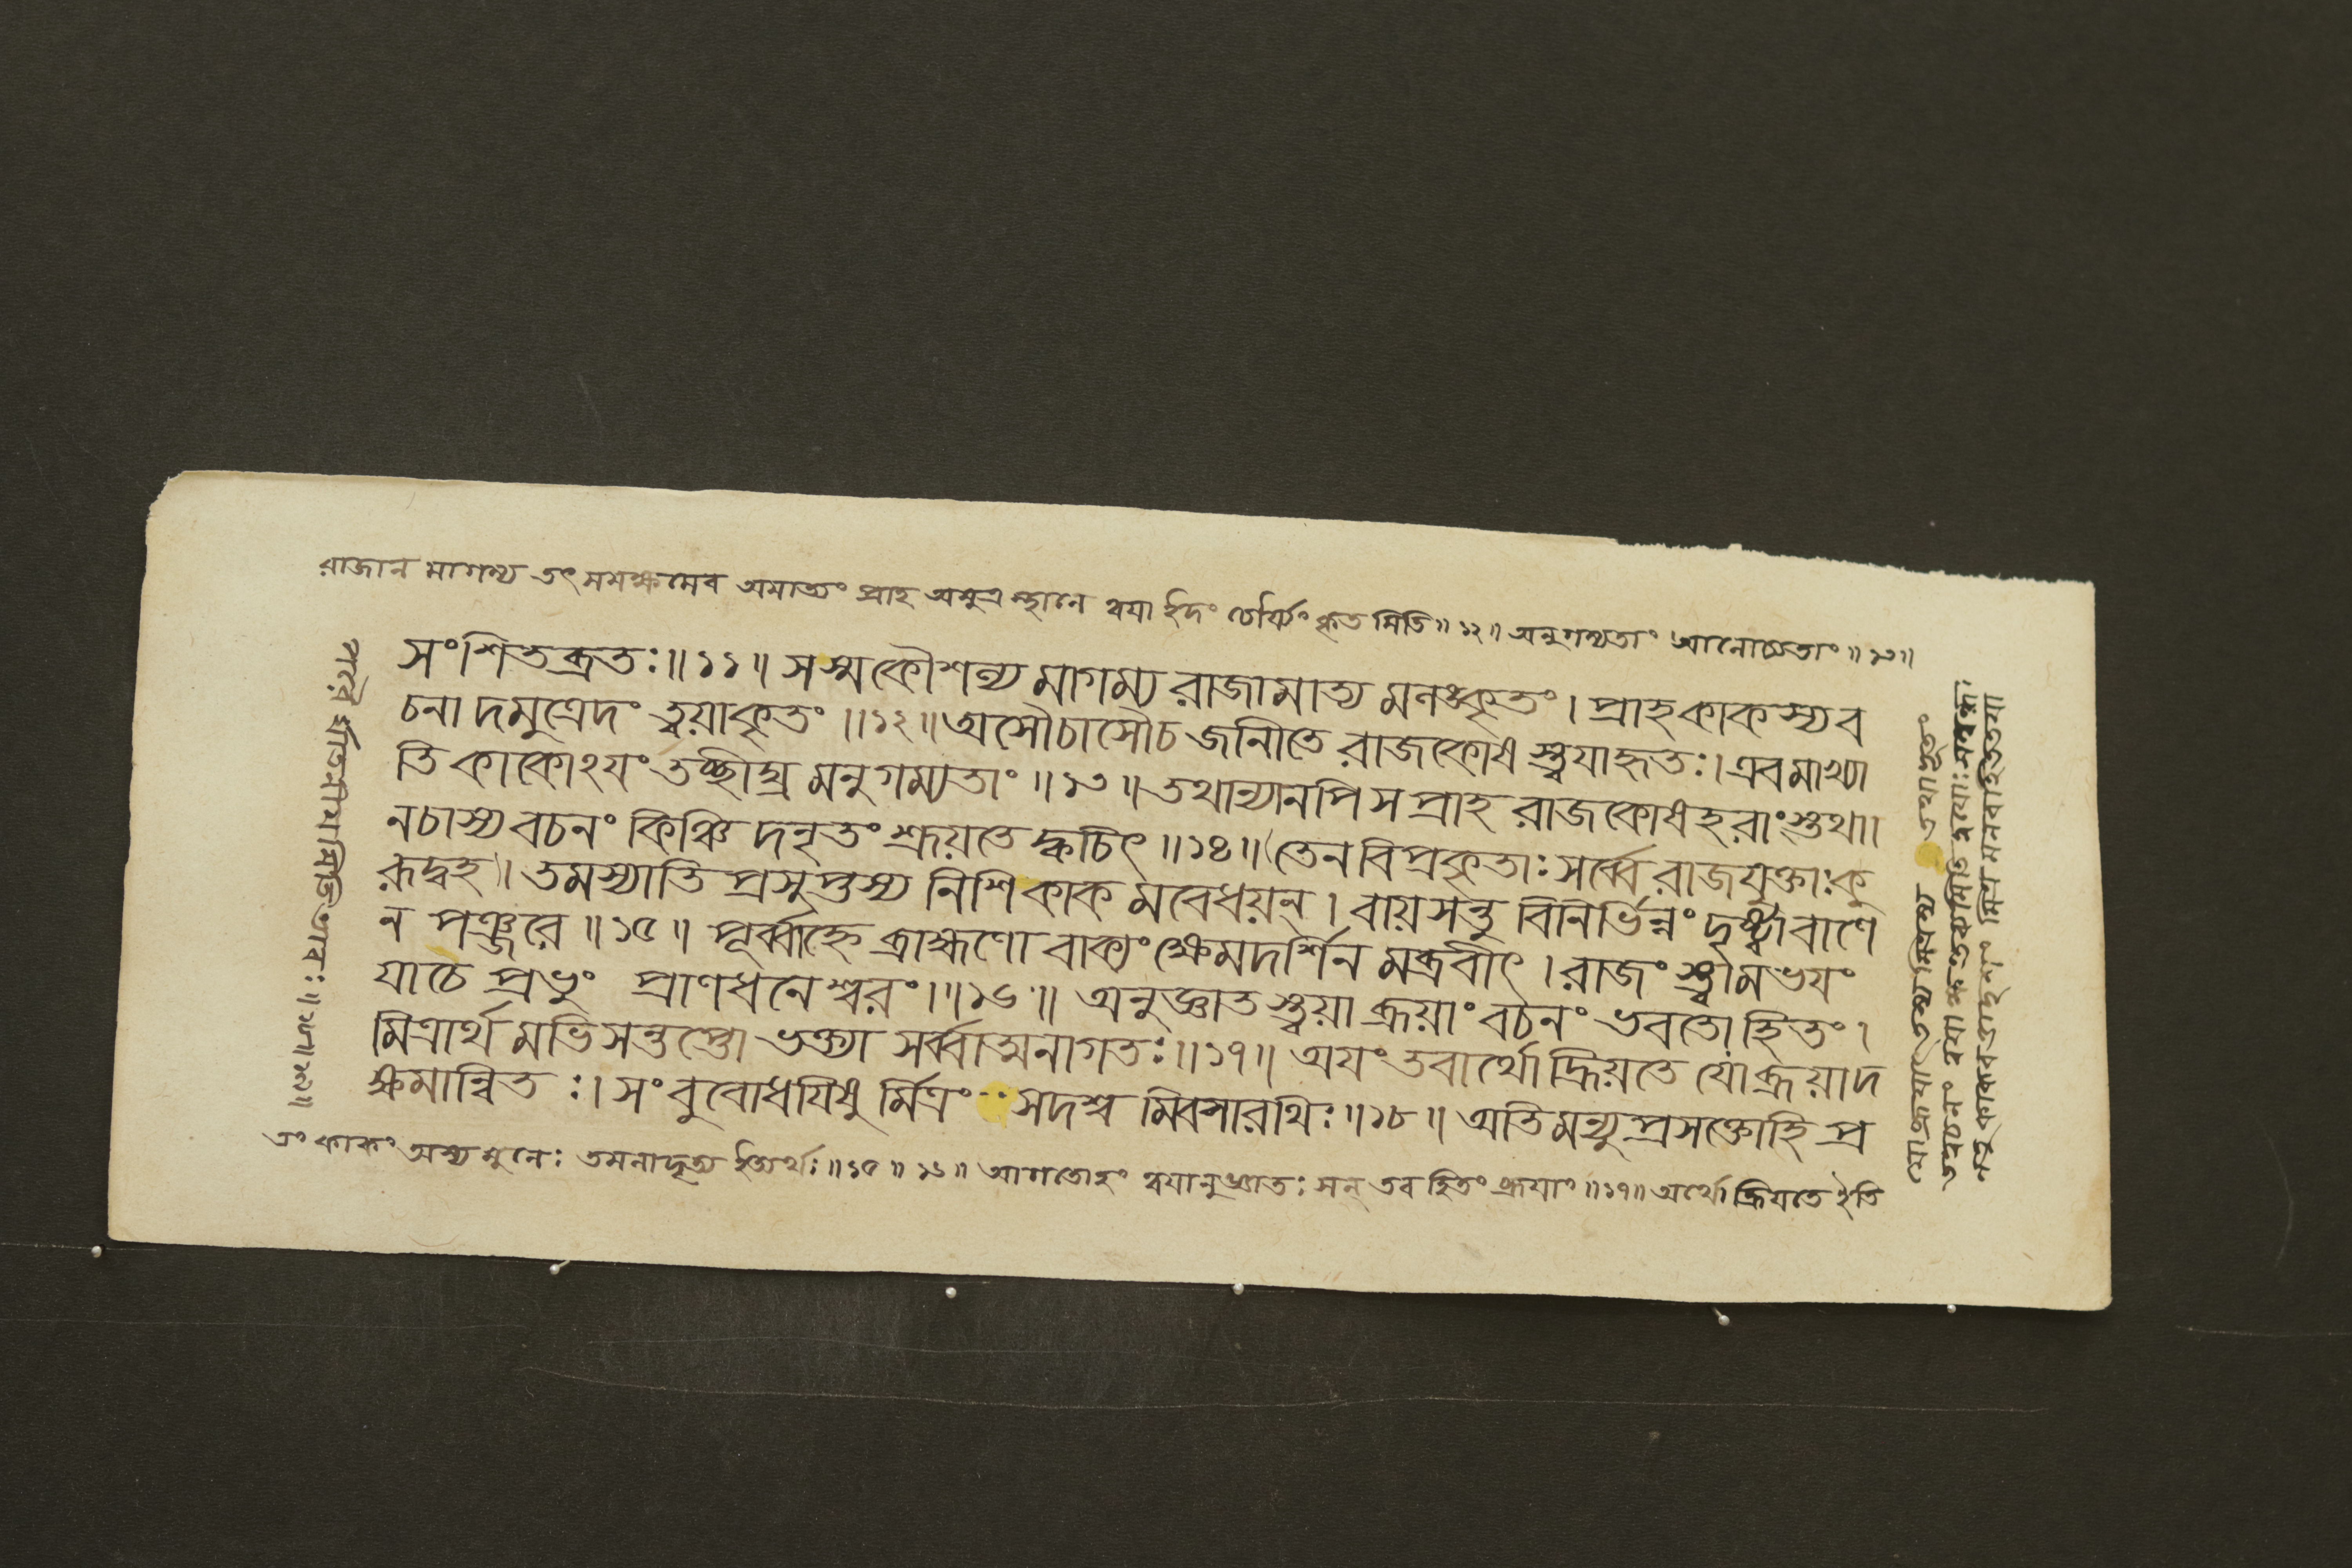 রাজান মাগম্য তৎ সমক্ষমেব অমাত্যং প্রাহ অমুত্র স্থানে ত্বযা ইদং চৌর্য্যং কৃত মিতি॥ ১২॥ অনুগম্যতাং আনোচ্যতাং ॥ ১৩॥
সংশিতব্রতঃ॥ ১১॥ সস্মকৌশল্য মাগম্য রাজামাত্য মলঙ্কৃতং। প্রাহকাকস্যব
চনা দমুত্রেদং ত্বয়াকৃতং ॥১২॥ অসৌচাসৌচ জানীতে রাজকোষ স্ত্বযাহৃতঃ। এবমাখ্যা
তি কাকোঽযং তচ্ছীঘ্র মনুগম্যতাং ॥ ১৩ ॥ তথান্যানপি স প্রাহ রাজকোষহরাংস্তথা।
নচাস্য বচনং কিঞ্চি দনৃতং শ্রূয়তে ক্বচিৎ ॥১৪॥ তেন বিপ্রকৃতাঃ সর্ব্বে রাজযুক্তাঃকু
রূদ্বহ। তমস্যাতি প্রসুপ্তস্য নিশি কাক মবেধয়ন্। বায়সন্তু বিনির্ভিন্নং দৃষ্ট্বাবাণে
ন পঞ্জরে ॥ ১৫ ॥ পূর্ব্বাহ্নে ব্রাহ্মণো বাক্যং ক্ষেমদর্শিন মব্রবীৎ। রাজং স্ত্বামভযং
যাচে প্রভুং প্রাণধনেশ্বরং।॥১৬॥ অনুজ্ঞাত স্ত্বয়া ব্রূয়াং বচনং ভবতো হিতং।
মিত্রার্থ মভিসন্তপ্তো ভক্ত্যা সর্ব্বাত্মনাগতঃ॥ ১৭॥ অযং তবার্থো হ্রিয়তে যো ব্রূয়াদ
ক্ষমান্বিত ঃ। সং বুবোধযিষু র্মিত্রং সদশ্ব মিবসারথিঃ॥১৮॥ অতিমন্যু প্রসক্তোহি প্র
তং কাকং অস্য মুনেঃ তমনাদৃত্য ইত্যর্থঃ॥ ১৫॥ ১৬॥ আগতোহং ত্বযানুজ্ঞাতঃ সন্ তব হিতং ব্রূযাং ॥১৭॥ অর্থো হ্রিযতে ইতি